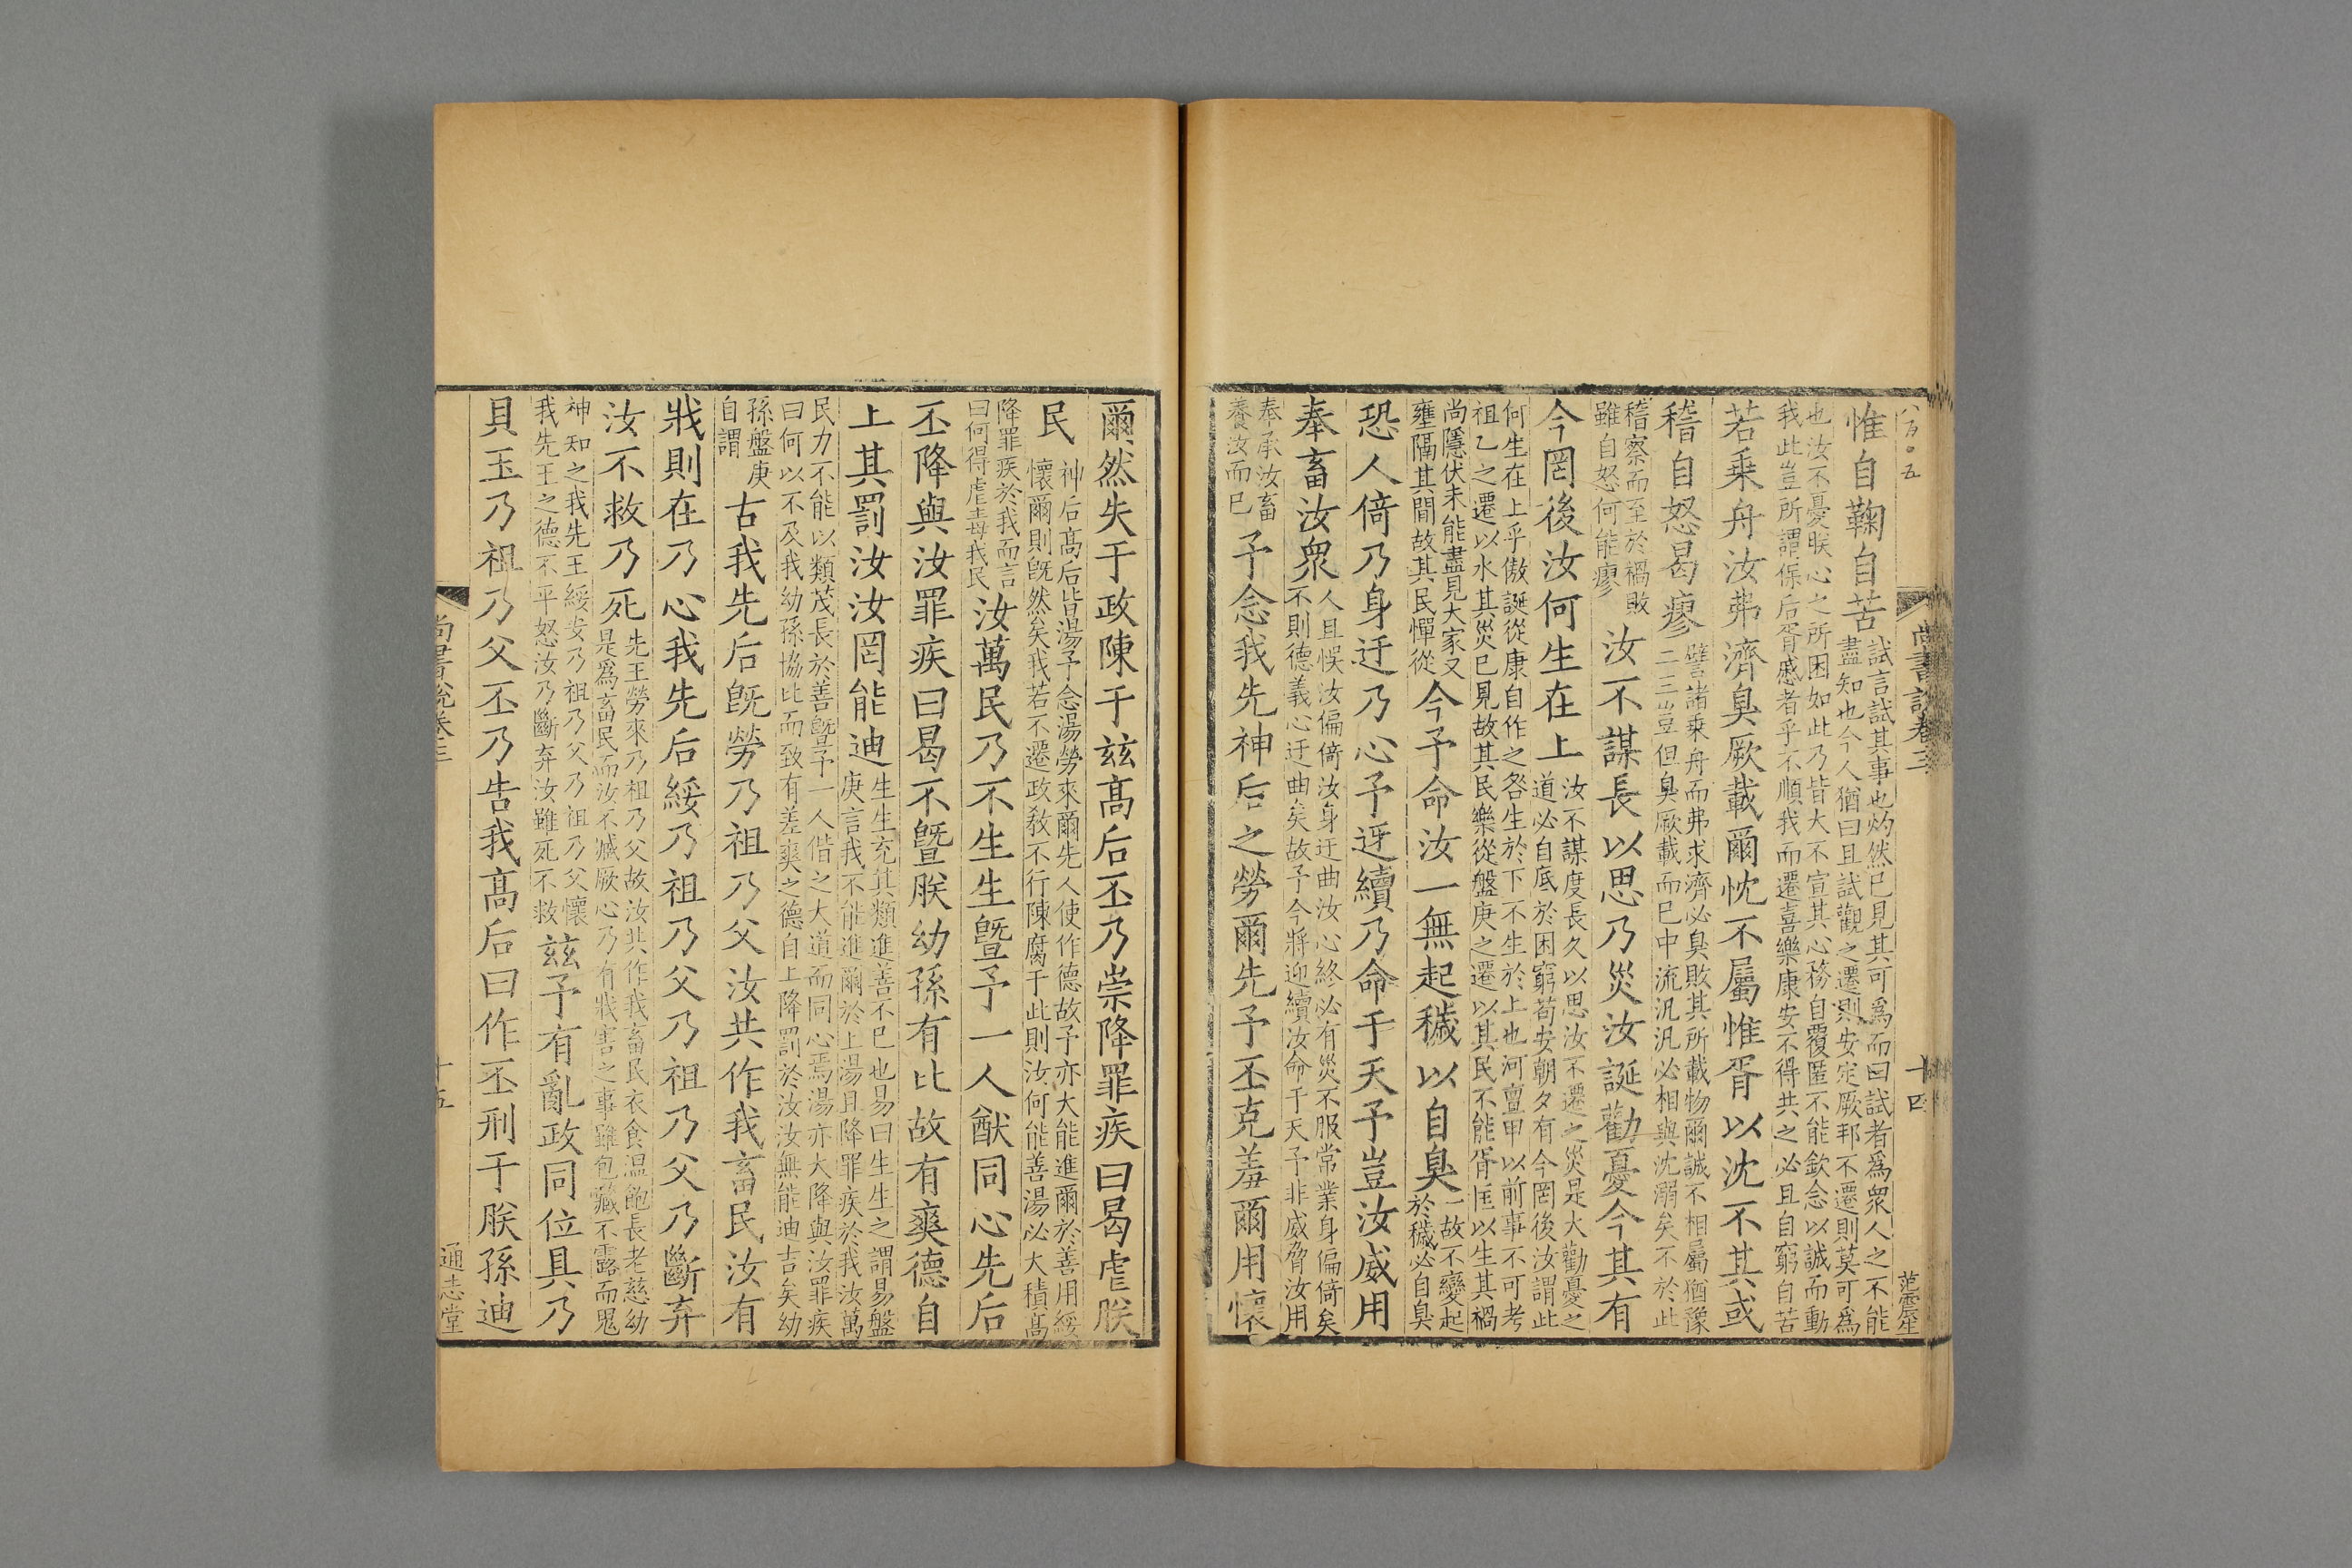 尚書說卷三
十四
惟自鞠自苦
試言試其事也灼然已見其可爲而曰試者爲衆人之不能
盡知也今人猶曰且試觀之遷則安定厥邦不遷則莫可爲
也汝不憂朕心之所困如此乃皆大不宣其心務自覆匿不能欽念以誠而動
我此豈所謂保后胥慼者乎不順我而遷喜樂康安不得共之必且自窮自苦
若乗舟汝弗濟臭厥載爾忱不屬惟胥以沈不其或
稽自怒曷瘳
譬諸乗舟而弗求濟必臭敗其所載物爾誠不相屬猶豫
二三豈但臭厥載而已中流汎汎必相與沈溺矣不於此
稽察而至於禍敗
雖自怒何能瘳
汝不謀長以思乃災汝誕勸憂今其有
今罔後汝何生在上
汝不謀度長久以思汝不遷之災是大勸憂之
道必自底於困窮苟安朝夕有今罔後汝謂此
何生在上乎傲誕從康自作之咎生於下不生於上也河亶甲以前事不可考
祖乙之遷以水其災已見故其民樂從盤庚之遷以其民不能胥匡以生其禍
尚隱伏未能盡見大家又
壅隔其間故其民憚從
今予命汝一無起穢以自臭
一故不變起
於穢必自臭
恐人倚乃身迂乃心予迓續乃命于天予豈汝威用
奉畜汝衆
人且悞汝偏倚汝身迂曲汝心終必有災不服常業身偏倚矣
不則德義心迂曲矣故予今將迎續汝命于天予非威脅汝用
奉承汝畜
養汝而已
予念我先神后之勞爾先予丕克羞爾用懷
爾然失于政陳于茲高后丕乃崇降罪疾曰曷虐朕
民
神后高后皆湯予念湯勞來爾先人使作德故予亦大能進爾於善用綏
懷爾則旣然矣我若不遷政教不行陳腐于此則汝何能善湯必大積高
降罪疾於我而言
曰何得虐毒我民
汝萬民乃不生生曁予一人猷同心先后
丕降與汝罪疾曰曷不曁朕幼孫有比故有爽德自
上其罰汝汝罔能迪
生生充其類進善不已也易曰生生之謂易盤
庚言我不能進爾於上湯且降罪疾於我汝萬
民力不能以類茂長於善曁予一人偕之大道而同心焉湯亦大降與汝罪疾
曰何以不及我幼孫協比而致有差爽之德自上降罰於汝汝無能迪吉矣幼
孫盤庚
自謂
古我先后旣勞乃祖乃父汝共作我畜民汝有
戕則在乃心我先后綏乃祖乃父乃祖乃父乃斷弃
汝不救乃死
先王勞來乃祖乃父故汝共作我畜民衣食温飽長老慈幼
是爲畜民而汝不臧厥心乃有戕害之事雖包藏不露而鬼
神知之我先王綏安乃祖乃父乃祖乃父懷
我先王之德不平怒汝乃斷弃汝雖死不救
茲予有亂政同位具乃
貝玉乃祖乃父丕乃告我高后曰作丕刑于朕孫迪
十五
通志堂